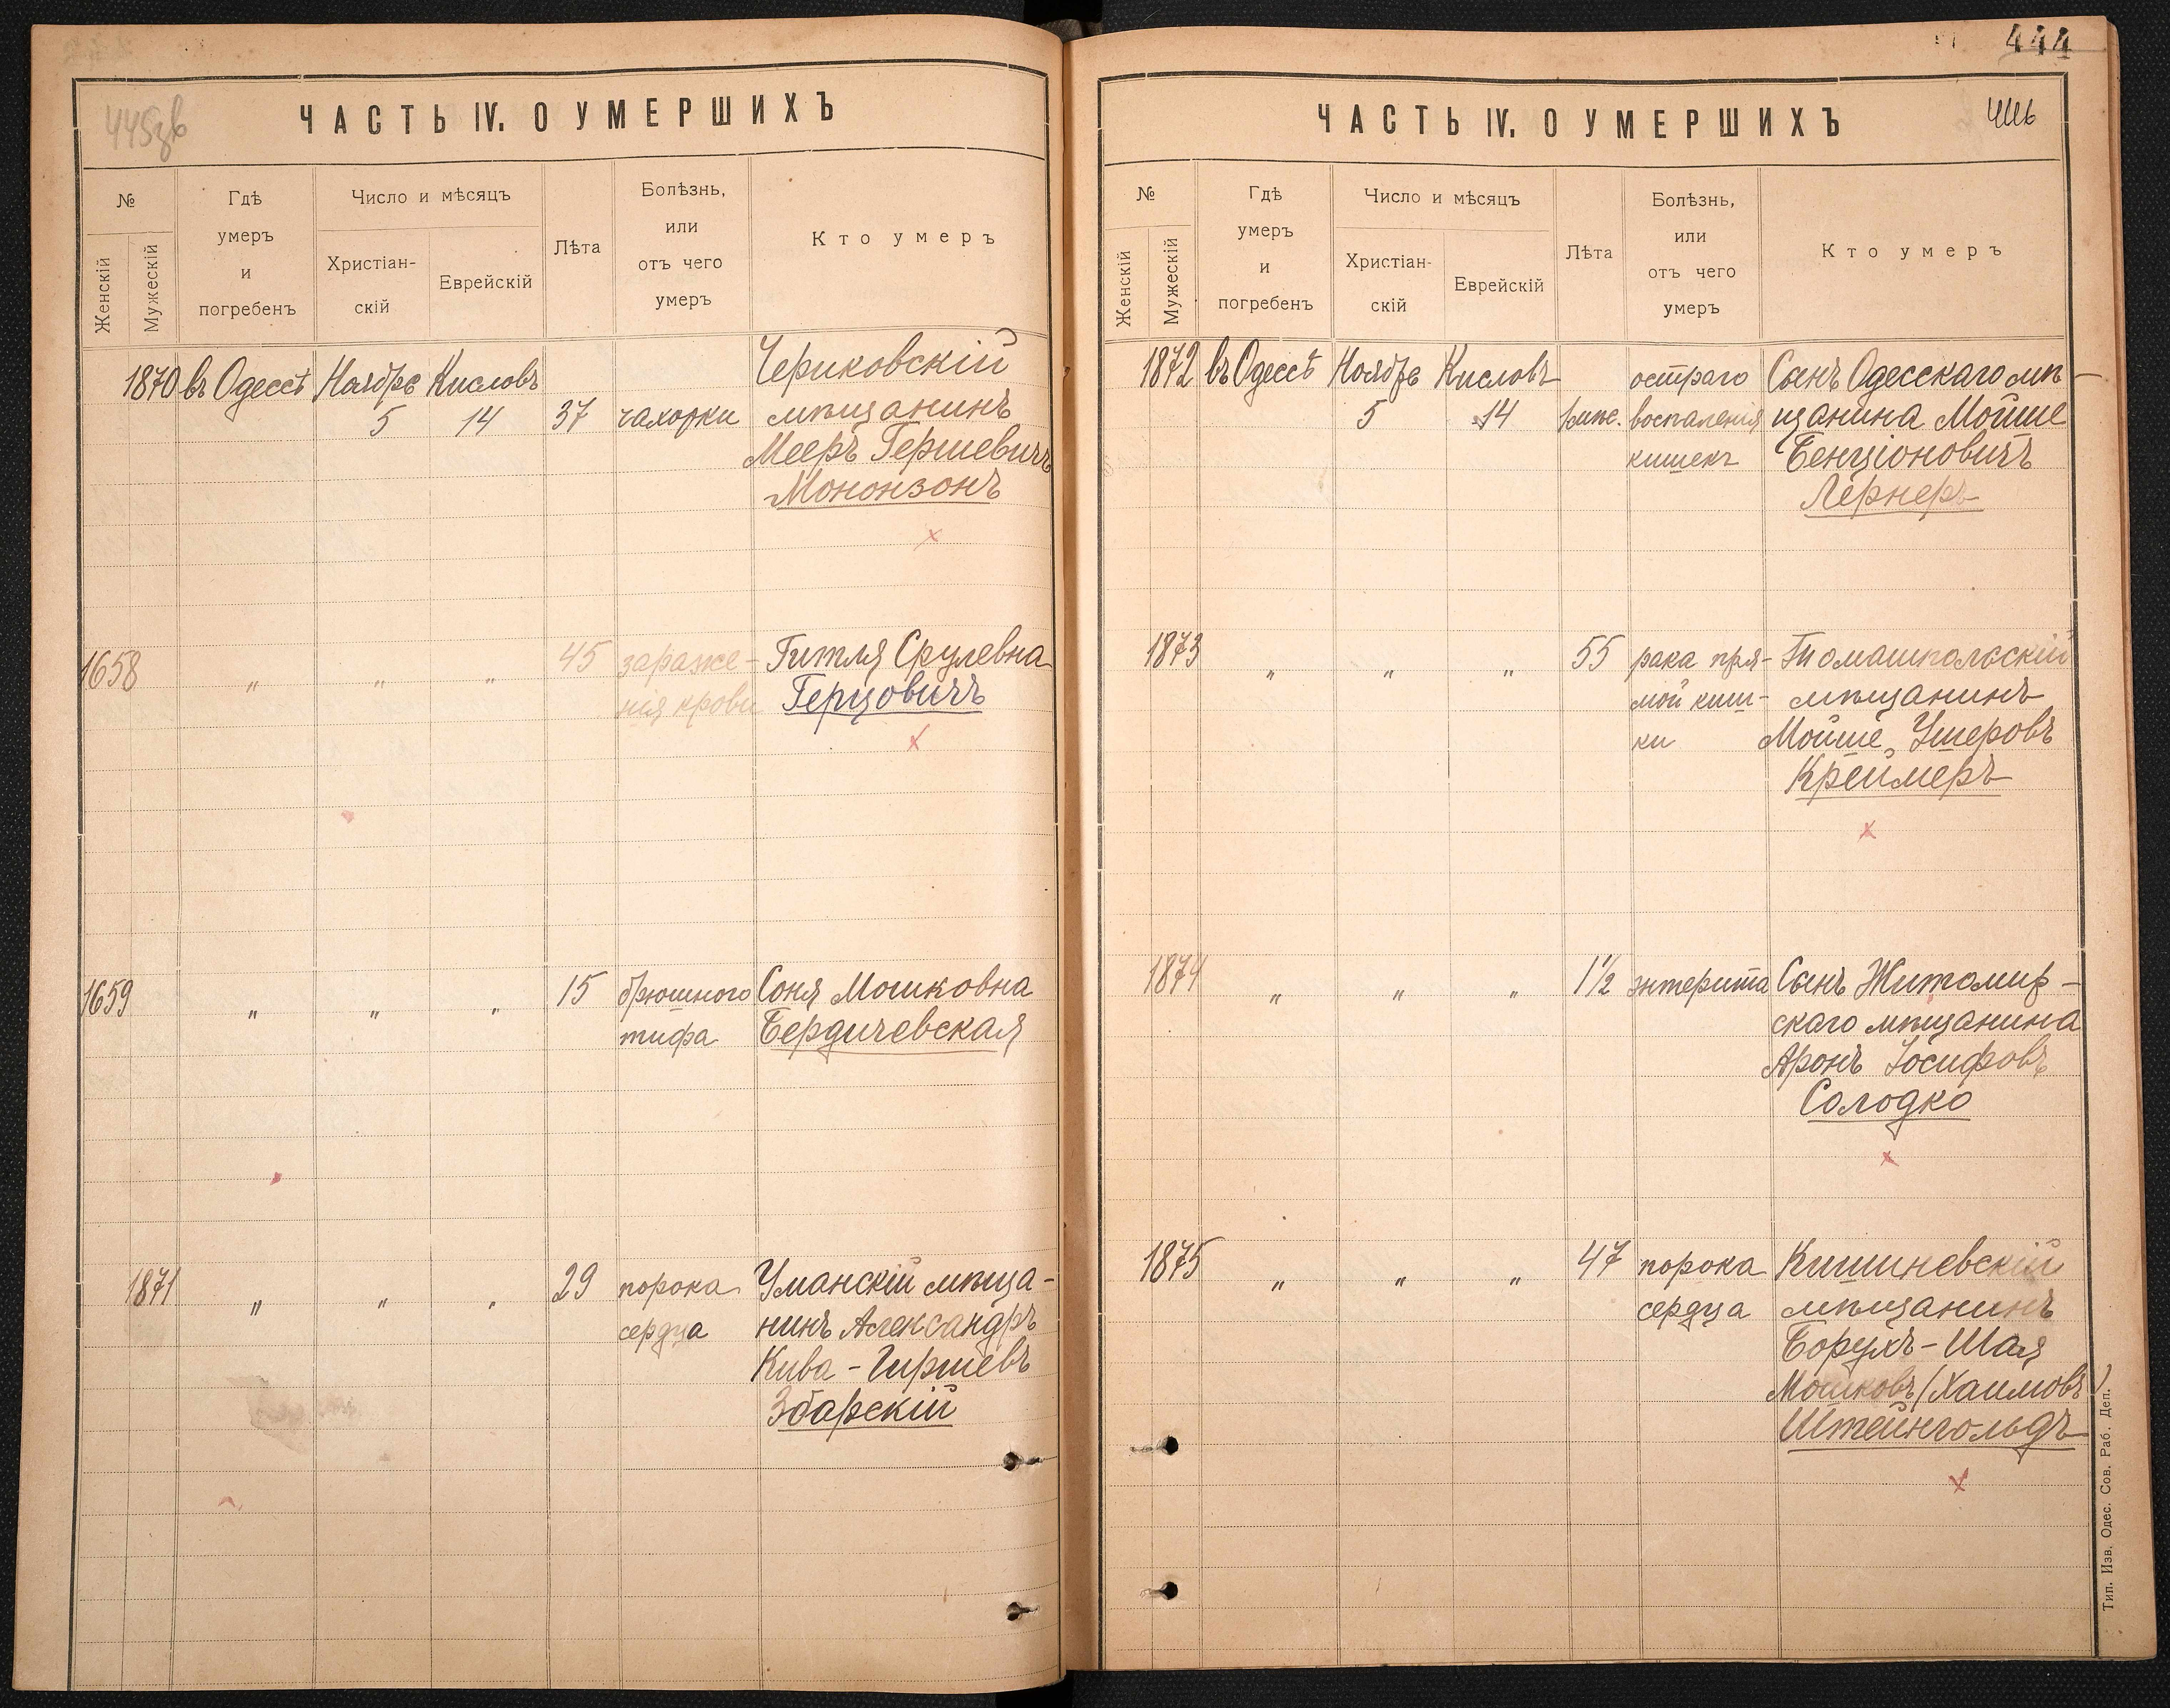 445зв
ЧАСТЬ IV. О УМЕРШИХЪ
№
Женскій
Мужескій
Гдѣ
умеръ
и
погребенъ
Число и мѣсяцъ
Христіан-
скій
Еврейскій
Лѣта
Болѣзнь,
или
отъ чего
умеръ
Кто умеръ
1870 въ Одессѣ Ноябрь Кисловъ Чериковскій
5 14 37 чахотки мѣщанинъ
Мееръ Гершевичъ
Мононзонъ
1658 " " " 45 зараже- Гитля Срулевна
нія крови Герцовичъ
1659 " " " 15 брюшного Соня Мошковна
тифа Бердичевская
1871 " " " 29 порока Уманскій мѣща-
сердца нинъ Александръ
Кива-Гиршевъ
Збарскій
444
ЧАСТЬ IV. О УМЕРШИХЪ
446
№
Женскій
Мужескій
Гдѣ
умеръ
и
погребенъ
Число и мѣсяцъ
Христіан-
скій
Еврейскій
Лѣта
Болѣзнь,
или
отъ чего
умеръ
Кто умеръ
1872 въ Одессѣ Ноябрь Кисловъ остраго Сынъ Одесскаго мѣ-
5 14 1 мѣс. воспаленія щанина Мойше
кишекъ Бенціоновичъ
Лернеръ
1873 " " " 55 рака пря- Томашпольскій
мой киш- мѣщанинъ
ки Мойше Ушеровъ
Креймеръ
1874 " " " 1½ энтерита Сынъ Житомир-
скаго мѣщанина
Аронъ Іосифовъ
Солодко
1875 " " " 47 порока Кишиневскій
сердца мѣщанинъ
Борухъ-Шая
Мошковъ (Хаимовъ)
Штейнгольдъ
Тип. Изв. Одес. Сов. Раб. Деп.